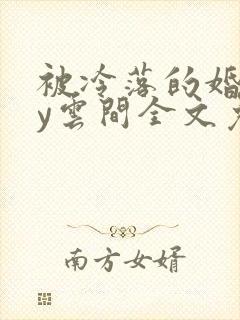 被冷落的婚
y雲間全文
南方女婿